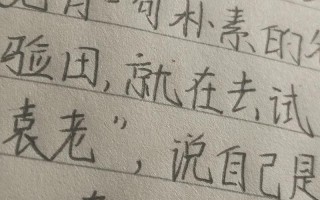 一句朴素的
验田,就在去试
袁老”,说自己是